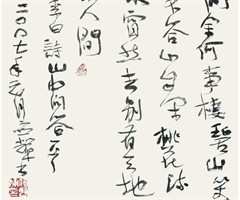 问余何事棲碧山笑
而不答心自闲桃花流
水窅然去别有天地
非人間
李白詩山中问答
二〇〇七年元月